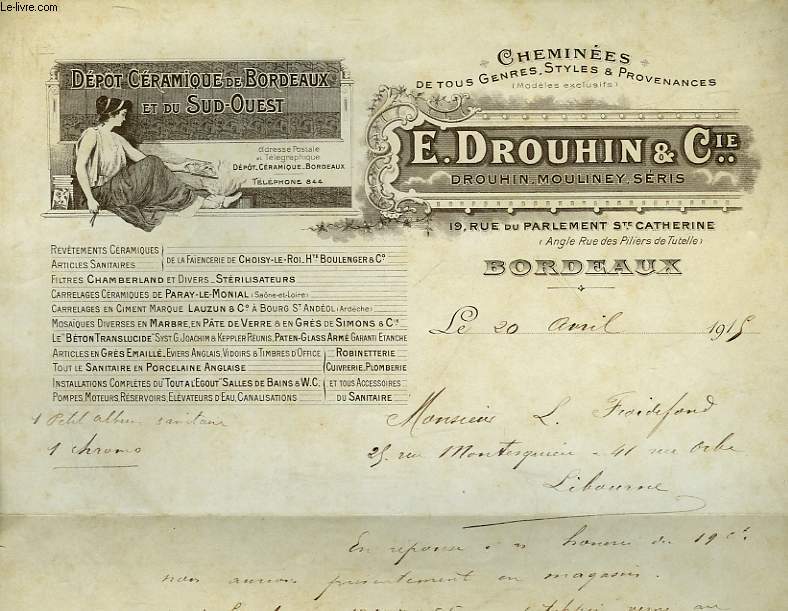 Le-livre.com
DÉPOT CÉRAMIQUE DE BORDEAUX
ET DU SUD-OUEST
Adresse Postale
et Télégraphique
DÉPOT_CÉRAMIQUE_BORDEAUX
TÉLÉPHONE 844
CHEMINÉES
DE TOUS GENRES, STYLES & PROVENANCES
(Modèles exclusifs)
E. DROUHIN & CIE
DROUHIN_MOULINEY_SÉRIS
19, RUE DU PARLEMENT STE CATHERINE
(Angle Rue des Piliers de Tutelle)
BORDEAUX
REVÊTEMENTS CÉRAMIQUES
ARTICLES SANITAIRES
DE LA FAIENCERIE DE CHOISY-LE-ROI. HTE BOULENGER & Cº
FILTRES CHAMBERLAND ET DIVERS_STÉRILISATEURS
CARRELAGES CÉRAMIQUES DE PARAY-LE-MONIAL (Saône-et-Loire)
CARRELAGES EN CIMENT MARQUE LAUZUN & Cº À BOURG ST ANDÉOL (Ardèche)
MOSAIQUES DIVERSES EN MARBRE, EN PÂTE DE VERRE & EN GRÈS DE SIMONS & CIE
LE "BÉTON TRANSLUCIDE" SYST. G. JOACHIM & KEPPLER RÉUNIS, PATEN-GLASS ARMÉ GARANTI ETANCHE
ARTICLES EN GRÈS EMAILLÉ, EVIERS ANGLAIS, VIDOIRS & TIMBRES D'OFFICE
TOUT LE SANITAIRE EN PORCELAINE ANGLAISE
INSTALLATIONS COMPLÈTES DU "TOUT A L'ÉGOUT" SALLES DE BAINS & W.C.
POMPES MOTEURS, RÉSERVOIRS, ELÉVATEURS D'EAU, CANALISATIONS
ROBINETTERIE
CUIVRERIE, PLOMBERIE
ET TOUS ACCESSOIRES
DU SANITAIRE
Le 20 avril 1915
1 Petit album sanitaire
1 chromo
Monsieur L. Froidefond
25, rue Montesquieu - 41 rue
Libourne
En réponse à honorée du 19 ct
nous avons présentement en magasin.